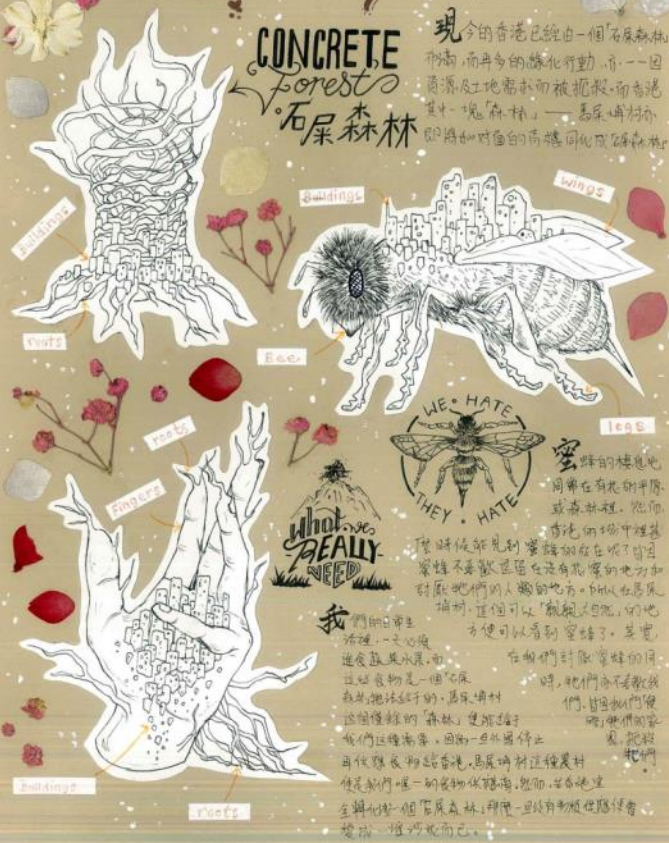 CONCRETE
Forest
石屎森林
現今的香港已經由一個「石屎森林」
佈滿,而再多的綠化行動,亦一一因
資源及土地需求而被扼殺。而香港
其中一塊「森林」——馬屎埔村亦
即將如對面的高樓同化成石屎森林。
Buildings
roots
Buildings
wings
Bee
legs
WE • HATE
THEY • HATE
roots
fingers
buildings
roots
what we
REALLY
NEED
蜜蜂的棲息地
通常在有花的平原
或森林裡。然而,
香港的城市裡甚
麼時候能見到蜜蜂的存在呢?皆因
蜜蜂不喜歡逗留在沒有花蜜的地方和
討厭牠們的人類的地方。所以在馬屎
埔村,這個可以「親親大自然」的地
方便可以看到蜜蜂了。其實,
在我們討厭蜜蜂的同
時,牠們亦不喜歡我
們,皆因我們「侵
牠們的家
園,扼殺
牠們。
我們的日常生
活裡,一天必須
進食蔬果水果,而
這些食物是一個石屎
森林無法給予的。馬屎埔村
這個僅餘的「森林」便能給予
我們這種需要。因為一旦外國停止
提供糧食 給香港,馬屎埔村這種農村
便是我們唯一的食物供應商。然而,若香港完
全轉化成一個「石屎森林」,那麼一旦沒有
變成一堆 而已。